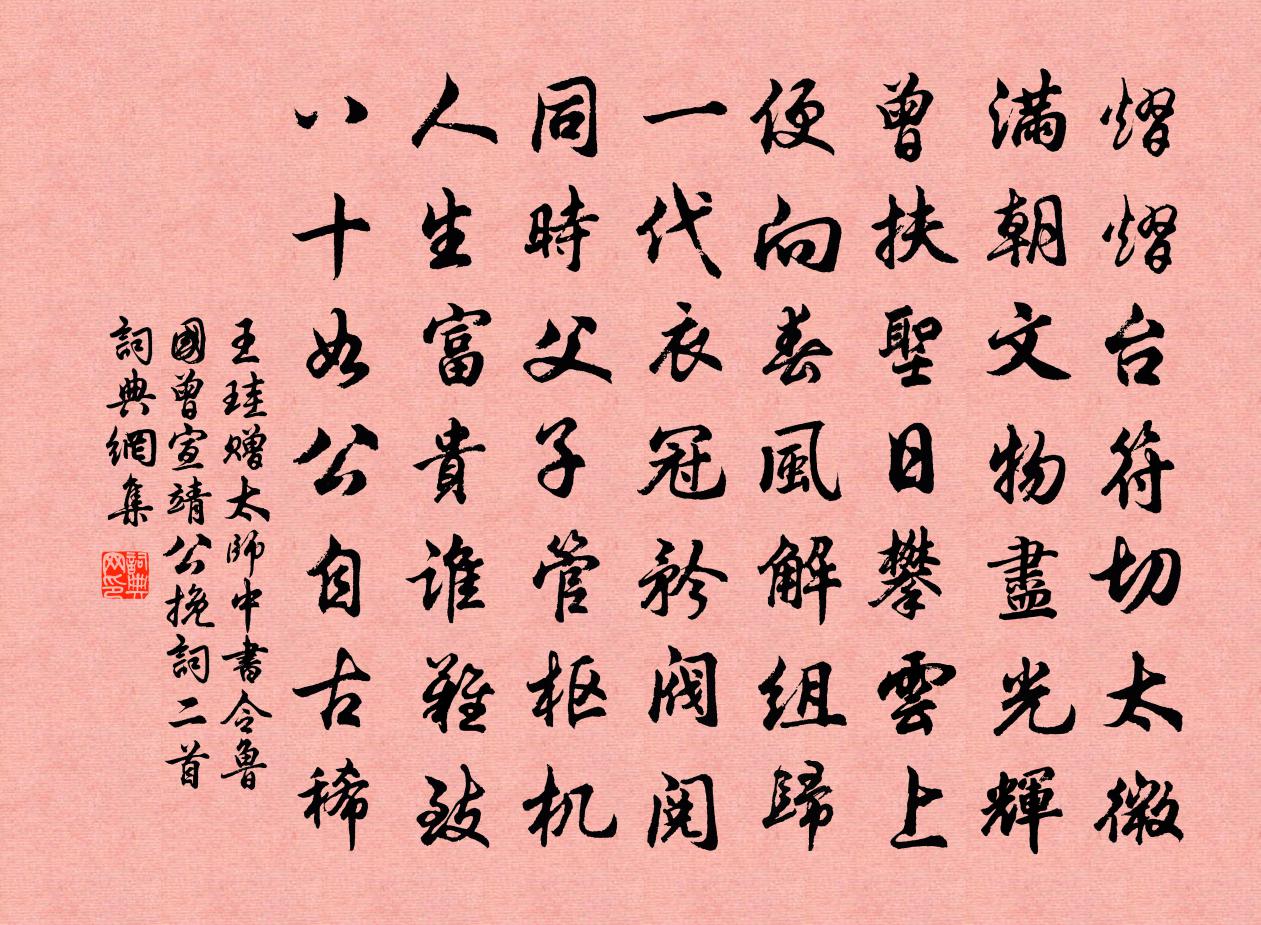 熠熠台符切太微
滿朝文物盡光輝
曾扶聖日攀雲上
便向春風解組歸
一代衣冠矜閥閱
同時父子管枢机
人生富貴誰難致
八十如公自古稀
王珪贈太師中書令魯
國曾宣靖公挽詞二首
詞典網集
詞典网印